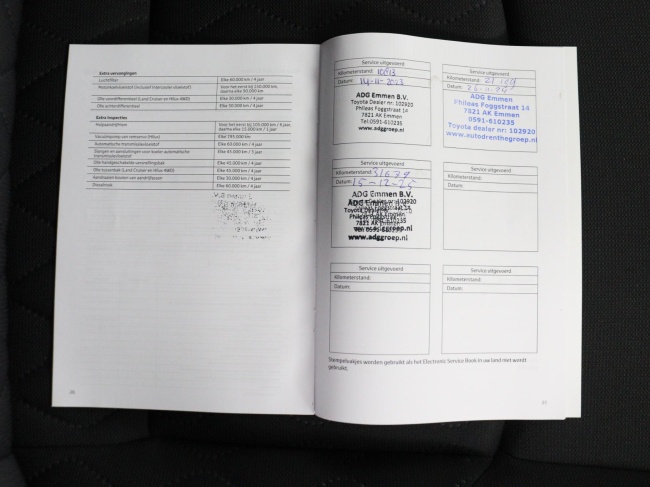 Extra vervangingen
Luchtfilter Elke 60.000 km / 4 jaar
Motorkoelvloeistof (inclusief intercooler vloeistof) Voor het eerst bij 150.000 km, daarna elke 90.000 km
Olie voordifferentieel (Land Cruiser en Hilux 4WD) Elke 30.000 km / 4 jaar
Olie achterdifferentieel Elke 30.000 km / 4 jaar
Extra inspecties
Hulpaandrijfriem Voor het eerst bij 105.000 km / 6 jaar, daarna elke 15.000 km / 1 jaar
Vacuümpomp van remservo (Hilux) Elke 195.000 km
Automatische transmissievloeistof Elke 60.000 km / 4 jaar
Slangen en aansluitingen voor koeler automatische transmissievloeistof Elke 45.000 km / 3 jaar
Olie handgeschakelde versnellingsbak Elke 45.000 km / 4 jaar
Olie tussenbak (Land Cruiser en Hilux 4WD) Elke 45.000 km / 4 jaar
Aandraaien bouten van aandrijfassen Elke 30.000 km / 4 jaar
Dieselrook Elke 60.000 km / 4 jaar
Service uitgevoerd
Kilometerstand:
Datum: 14-11-2023
ADG Emmen B.V.
Toyota Dealer nr: 102920
Phileas Foggstraat 14
7821 AK Emmen
Tel.0591-610235
www.adggroep.nl
Service uitgevoerd
Kilometerstand:
Datum:
ADG Emmen
Phileas Foggstraat 14
7821 AK Emmen
0591-610235
Toyota dealer nr: 102920
www.autodrenthegroep.nl
Service uitgevoerd
Kilometerstand: 31639
Datum: 15-12-25
ADG Emmen B.V.
www.adggroep.nl
Service uitgevoerd
Kilometerstand:
Datum:
Service uitgevoerd
Kilometerstand:
Datum:
Service uitgevoerd
Kilometerstand:
Datum:
Stempelvakjes worden gebruikt als het Electronic Service Book in uw land niet wordt
gebruikt.